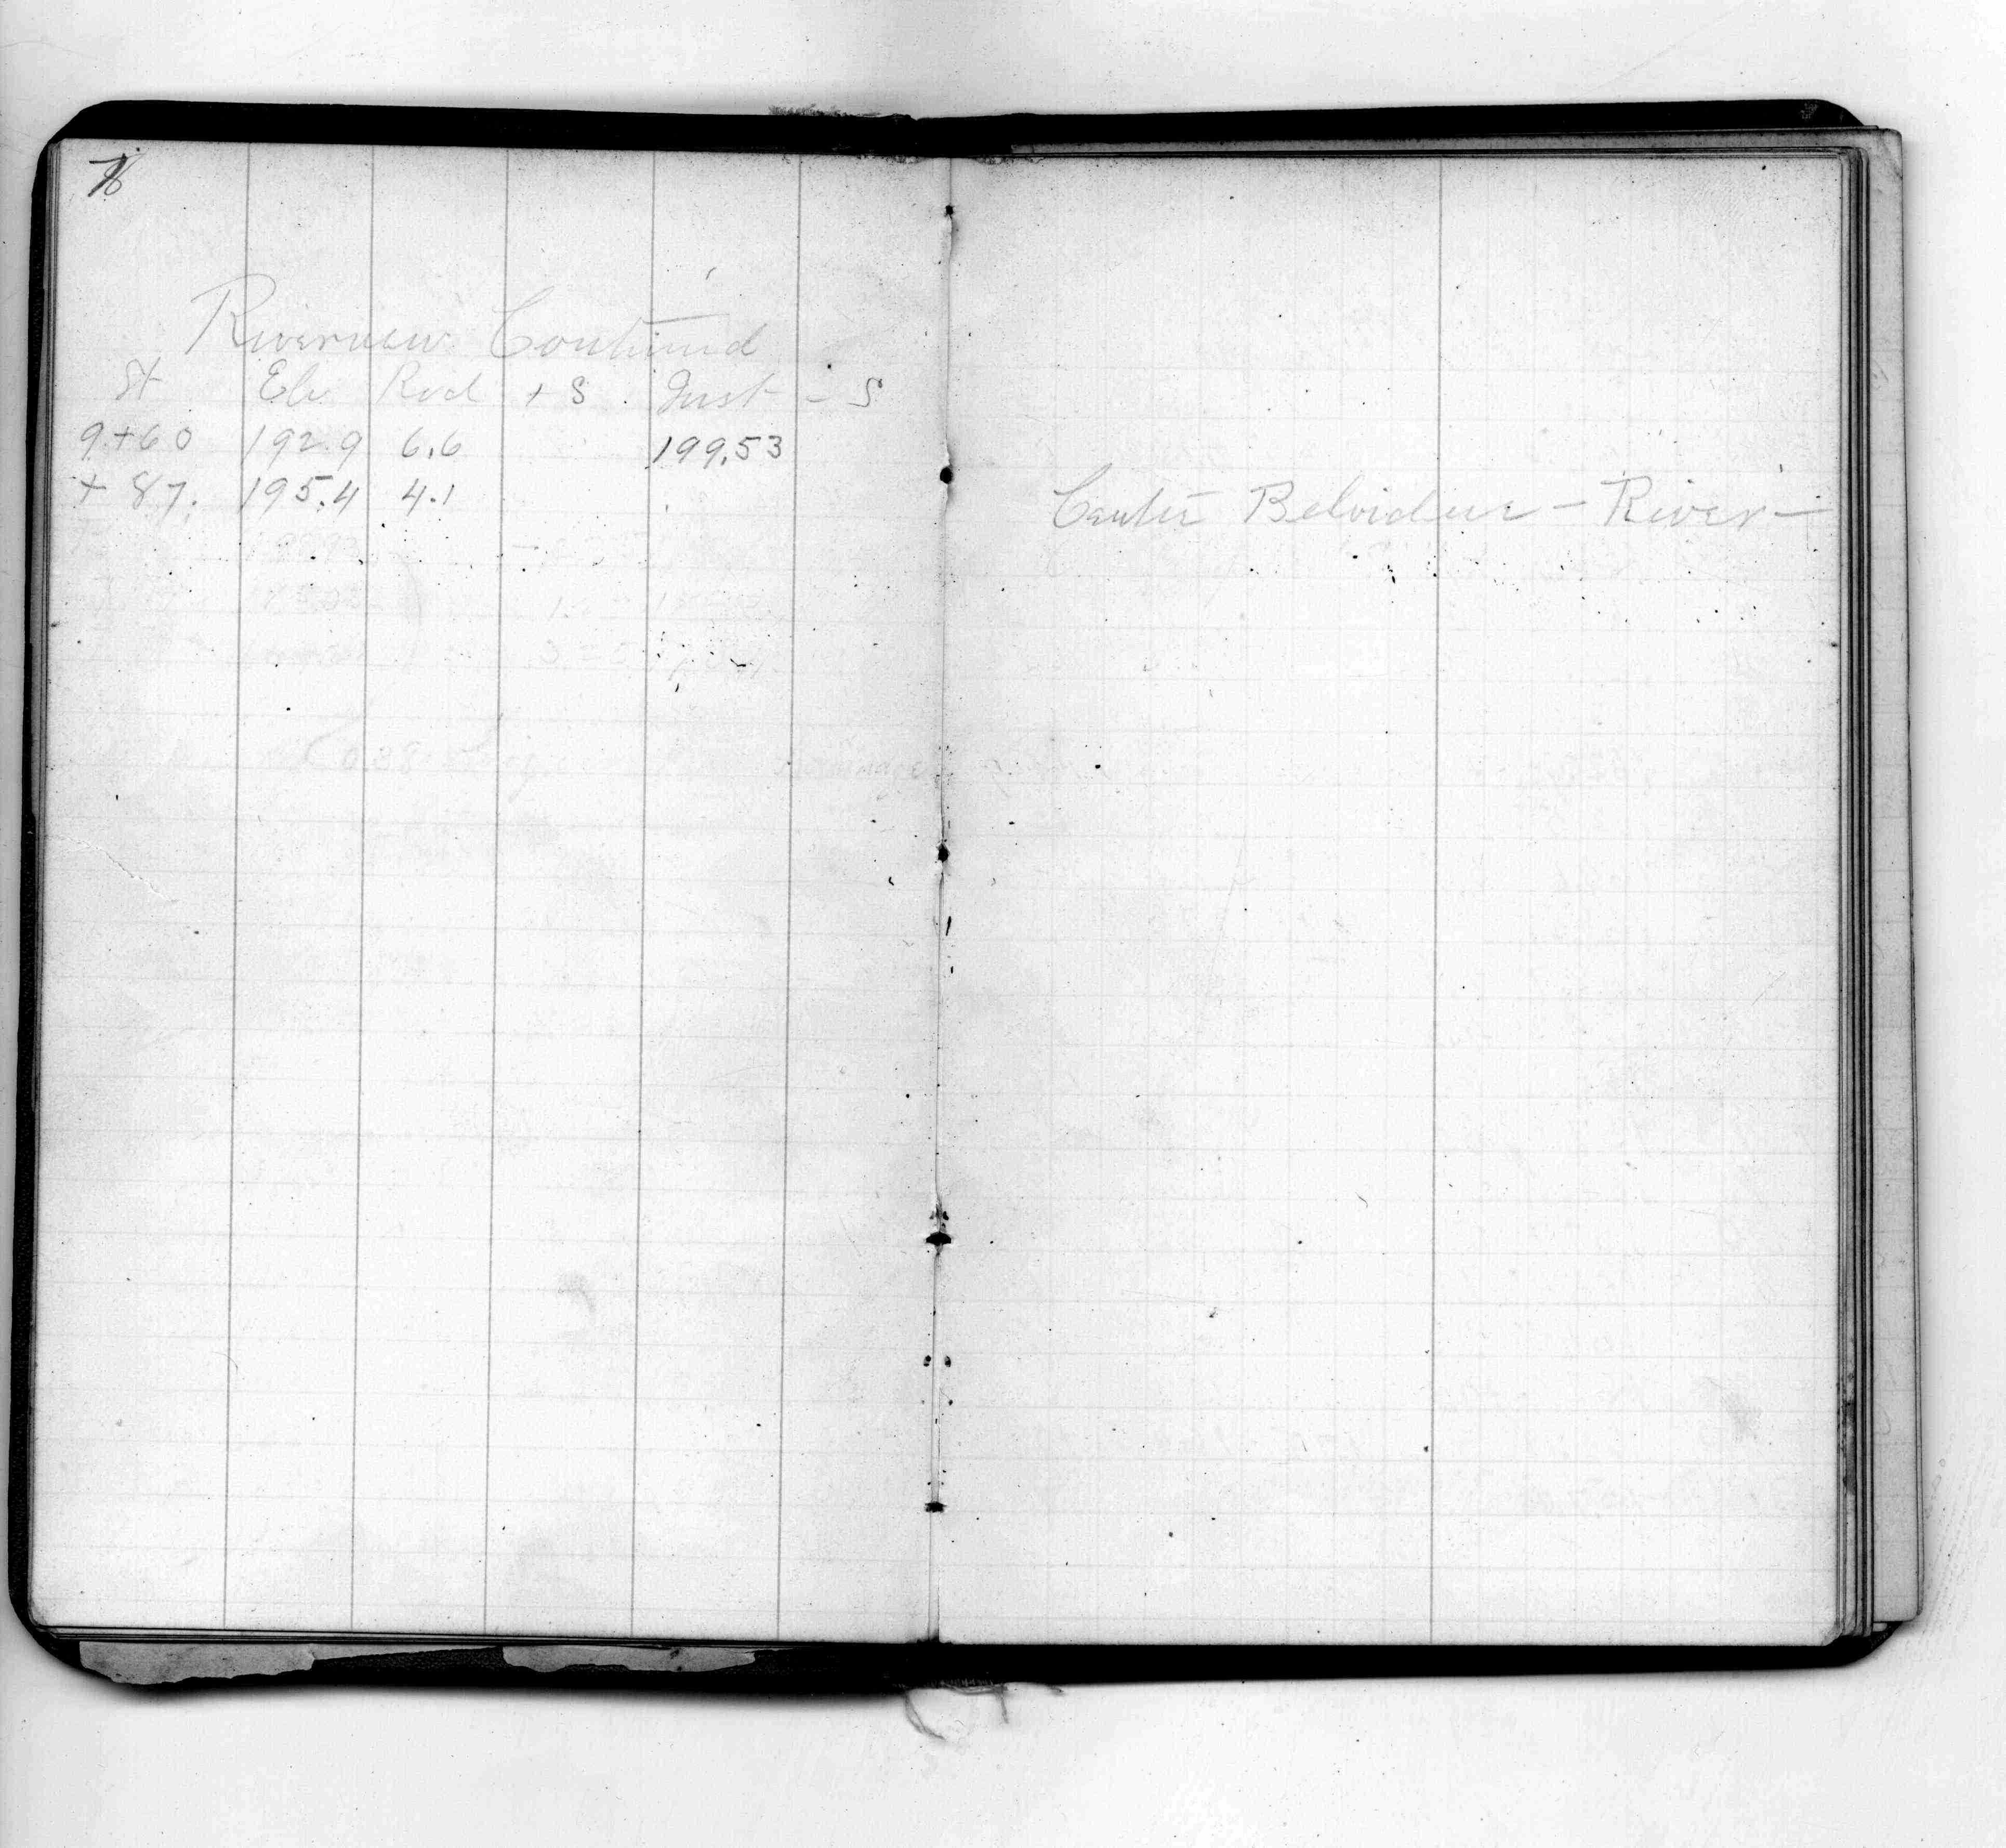 76
Riverview Continued
St Elv Rod + S Inst - S
9+60 192.9 6.6 199.53
+ 87. 195.4 4.1
Center Belvidere - River -